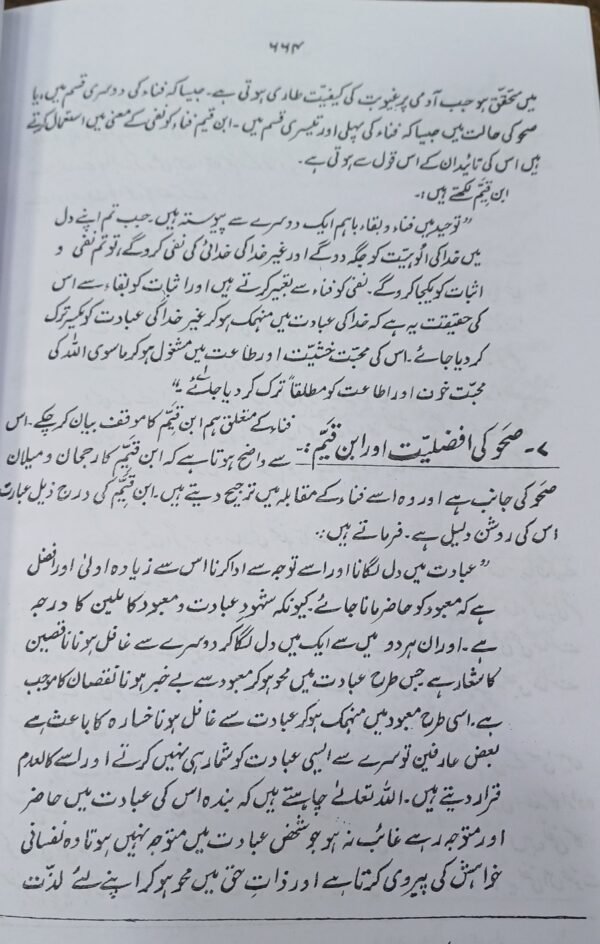 ۶۶۴
میں محقق ہو جب آدمی پر غیوبت کی کیفیت طاری ہوتی ہے۔ جیسا کہ فناء کی دوسری قسم میں، یا
صحو کی حالت میں جیسا کہ فناء کی پہلی اور تیسری قسم میں۔ ابن قیم فناء کو نفی کے معنی میں استعمال کرتے
ہیں اس کی تائید ان کے اس قول سے ہوتی ہے۔
ابن قیمؒ لکھتے ہیں:۔
”توحید میں فناء و بقاء باہم ایک دوسرے سے پیوستہ ہیں۔ جب تم اپنے دل
میں خدا کی الُوہیّت کو جگہ دو گے اور غیر خدا کی خدائی کی نفی کرو گے، تو تم نفی و
اثبات کو یکجا کرو گے۔ نفی کو فناء سے تعبیر کرتے ہیں اور اثبات کو بقاء سے اس
کی حقیقت یہ ہے کہ خدا کی عبادت میں منہمک ہو کر غیر خدا کی عبادت کو یکسر ترک
کر دیا جائے۔ اس کی محبت خشیّت اور طاعت میں مشغول ہو کر ماسوی اللہ کی
محبّت خوف اور اطاعت کو مطلقاً ترک کر دیا جائے۔“
۷۔ صَحو کی افضلیّت اور ابن قیّمؒ:۔ فناء کے متعلق ہم ابن قیّمؒ کا موقف بیان کر چکے۔ اس
سے واضح ہوتا ہے کہ ابن قیّمؒ کا رجحان و میلان
صحو کی جانب ہے اور وہ اسے فناء کے مقابلہ میں ترجیح دیتے ہیں۔ ابن قیّمؒ کی درج ذیل عبارت
اس کی روشن دلیل ہے۔ فرماتے ہیں:۔
”عبادت میں دل لگانا اور اسے توجہ سے ادا کرنا اس سے زیادہ اولیٰ اور افضل
ہے کہ معبود کو حاضر مانا جائے۔ کیونکہ شہودِ عبادت و معبود کاملین کا درجہ
ہے۔ اور ان ہر دو میں سے ایک میں دل لگا کر دوسرے سے غافل ہونا ناقصین
کا شعار ہے جس طرح عبادت میں محو ہو کر معبود سے بے خبر ہونا نقصان کا موجب
ہے۔ اسی طرح معبود میں منہمک ہو کر عبادت سے غافل ہونا خسارہ کا باعث ہے
بعض عارفین تو سرے سے ایسی عبادت کو شمار ہی نہیں کرتے اور اسے کالعدم
قرار دیتے ہیں۔ اللہ تعالےٰ چاہتے ہیں کہ بندہ اس کی عبادت میں حاضر
اور متوجہ رہے غائب نہ ہو جو شخص عبادت میں متوجہ نہیں ہوتا وہ نفسانی
خواہش کی پیروی کرتا ہے اور ذاتِ حق میں محو ہو کر اپنے لئے لذّت